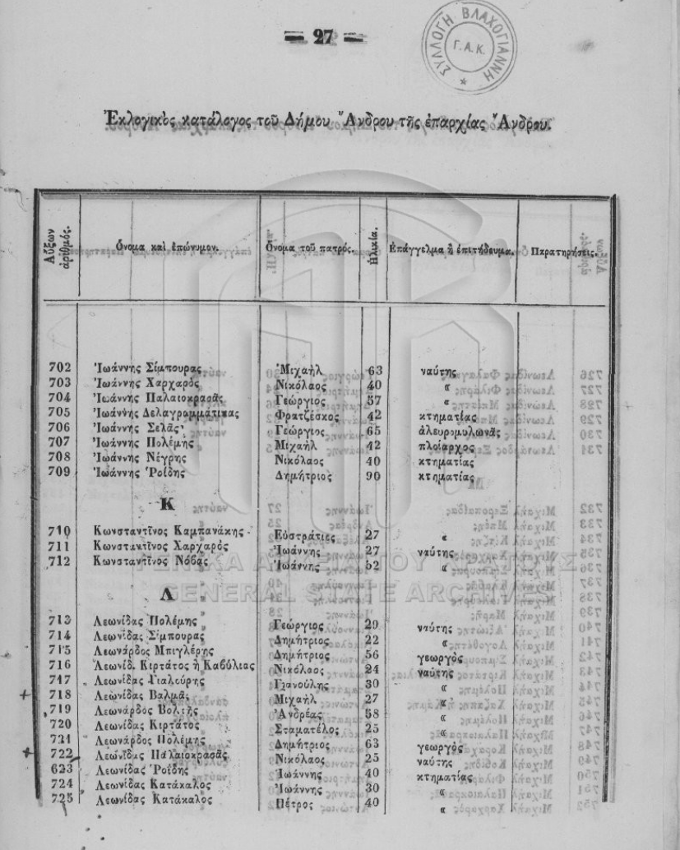 = 27 =
ΣΥΛΛΟΓΗ ΒΛΑΧΟΓΙΑΝΝΗ
Γ.Α.Κ.
Ἐκλογικὸς κατάλογος τοῦ Δήμου Ἄνδρου τῆς ἐπαρχίας Ἄνδρου.
Αὔξων ἀριθμός. Ὄνομα καὶ ἐπώνυμον. Ὄνομα τοῦ πατρός. Ἡλικία. Ἐπάγγελμα ἢ ἐπιτήδευμα. Παρατηρήσεις.
702 Ἰωάννης Σίμπουρας Μιχαὴλ 63 ναύτης
703 Ἰωάννης Χαρχαρὸς Νικόλαος 40 «
704 Ἰωάννης Παλαιοκρασᾶς Γεώργιος 57 «
705 Ἰωάννης Δελαγραμμάτικας Φρατζέσκος 42 κτηματίας
706 Ἰωάννης Σελᾶς Γεώργιος 65 ἀλευρομυλωνᾶς
707 Ἰωάννης Πολέμης Μιχαὴλ 42 πλοίαρχος
708 Ἰωάννης Νέγρης Νικόλαος 40 κτηματίας
709 Ἰωάννης Ῥοΐδης Δημήτριος 90 κτηματίας
Κ
710 Κωνσταντῖνος Καμπανάκης Εὐστράτιος 27 «
711 Κωνσταντῖνος Χαρχαρὸς Ἰωάννης 27 ναύτης
712 Κωνσταντῖνος Νόβας Ἰωάννης 52 «
GENERAL STATE ARCHIVES
Λ
713 Λεωνίδας Πολέμης Γεώργιος 29 ναύτης
714 Λεωνίδας Σίμπουρας Δημήτριος 22 «
715 Λεωνάρδος Μπιγλέρης Δημήτριος 56 γεωργὸς
716 Λεωνίδ. Κιρτάτος ἢ Καβύλιας Νικόλαος 24 ναύτης
747 Λεωνίδας Γιαλούρης Γιανούλης 30 «
718 Λεωνίδας Βαλμᾶς Μιχαὴλ 27 «
719 Λεωνάρδος Ἀνδρέας 58 «
720 Λεωνίδας Κιρτάτος Σταματέλος 25 «
721 Λεωνάρδος Πολέμης Δημήτριος 63 γεωργὸς
722 Λεωνίδας Παλαιοκρασᾶς Νικόλαος 25 ναύτης
623 Λεωνίδας Ῥοΐδης Ἰωάννης 40 κτηματίας
724 Λεωνίδας Κατάκαλος Ἰωάννης 30 «
725 Λεωνίδας Κατάκαλος Πέτρος 40 «